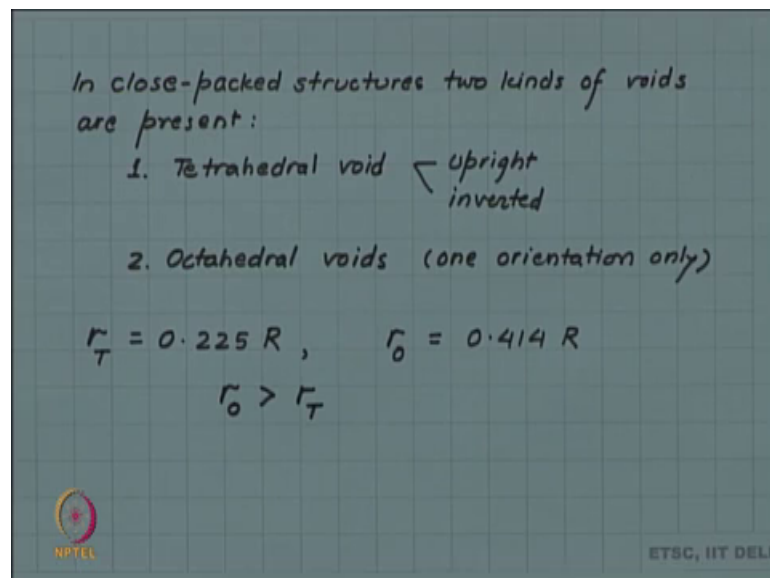 In close-packed structures two kinds of voids
are present:
1. Tetrahedral void
upright
inverted
2. Octahedral voids (one orientation only)
r_T = 0.225 R, r_o = 0.414 R
r_o > r_T
NPTEL
ETSC, IIT DEL